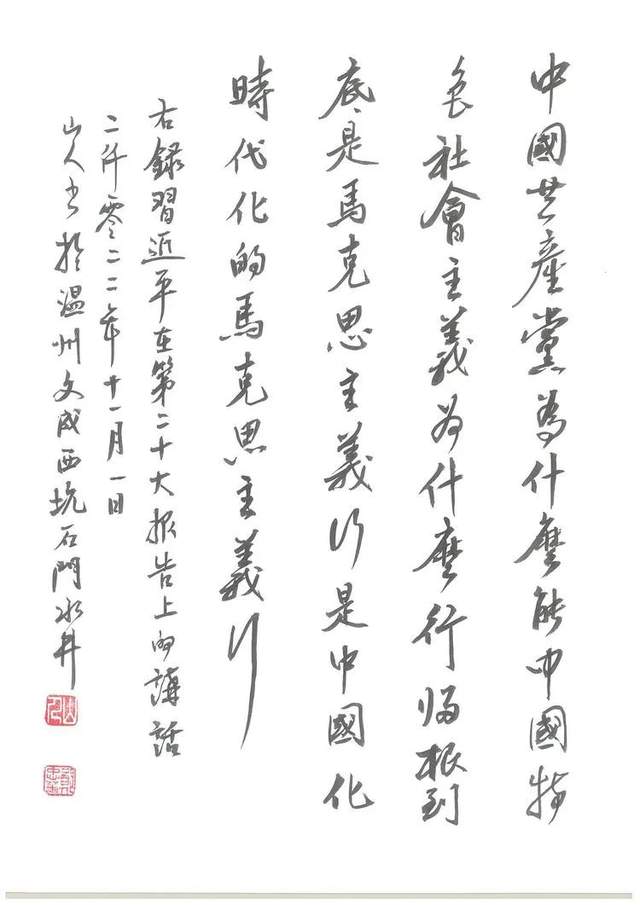 中國共產黨為什麼能中國特
色社會主義为什麼行归根到
底是馬克思主義行是中國化
時代化的馬克思主義行
右録習近平在第二十大报告上的講話
二仟零二二年十一月一日
山人书於温州文成西坑石門水井
山人